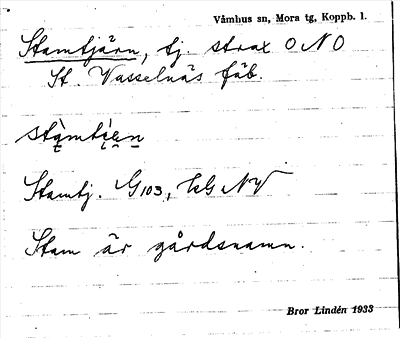 Våmhus sn, Mora tg, Koppb. l.
Stamtjärn, tj. strax ONO
St. Vasselnäs fäb.
Stamtj. G103, kG NV
Stam är gårdsnamn.
Bror Lindén 1933